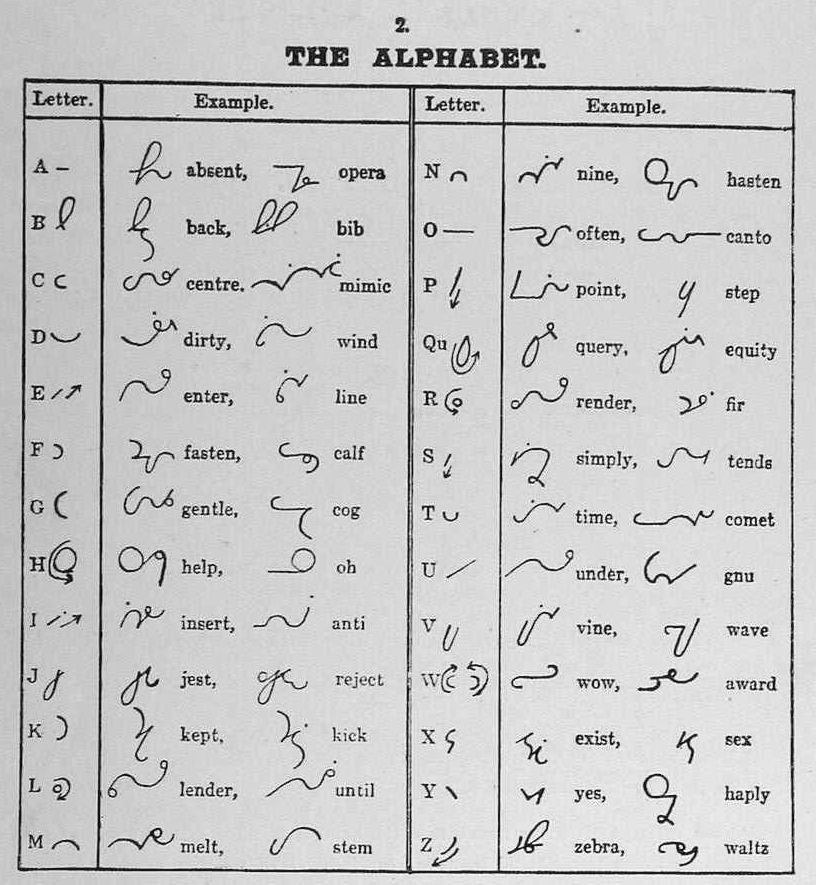 2.
THE ALPHABET.
Letter. Example. Letter. Example.
A absent, opera N nine, hasten
B back, bib O often, canto
C centre. mimic P point, step
D dirty, wind Qu query, equity
E enter, line R render, fir
F fasten, calf S simply, tends
G gentle, cog T time, comet
H help, oh U under, gnu
I insert, anti V vine, wave
J jest, reject W wow, award
K kept, kick X exist, sex
L lender, until Y yes, haply
M melt, stem Z zebra, waltz